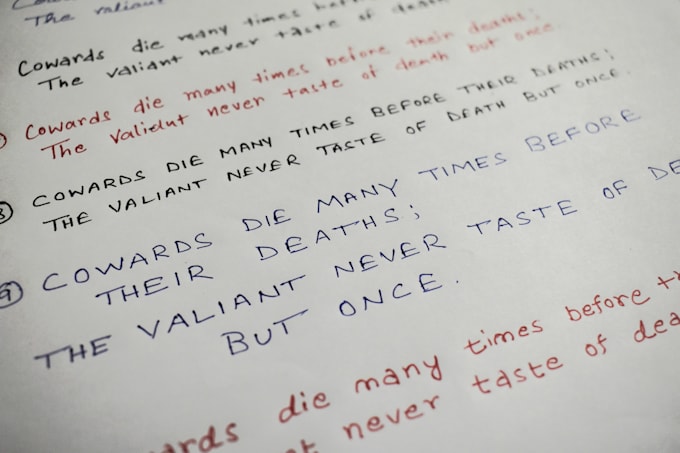 The valiant
Cowards die many times
The valiant never taste of death
Cowards die many times before their deaths;
The valient never taste of death but once.
8 COWARDS DIE MANY TIMES BEFORE THEIR DEATHS;
THE VALIANT NEVER TASTE OF DEATH BUT ONCE.
9 COWARDS DIE MANY TIMES BEFORE
THEIR DEATHS;
THE VALIANT NEVER TASTE OF DE
BUT ONCE.
ards die many times before
never taste of dea